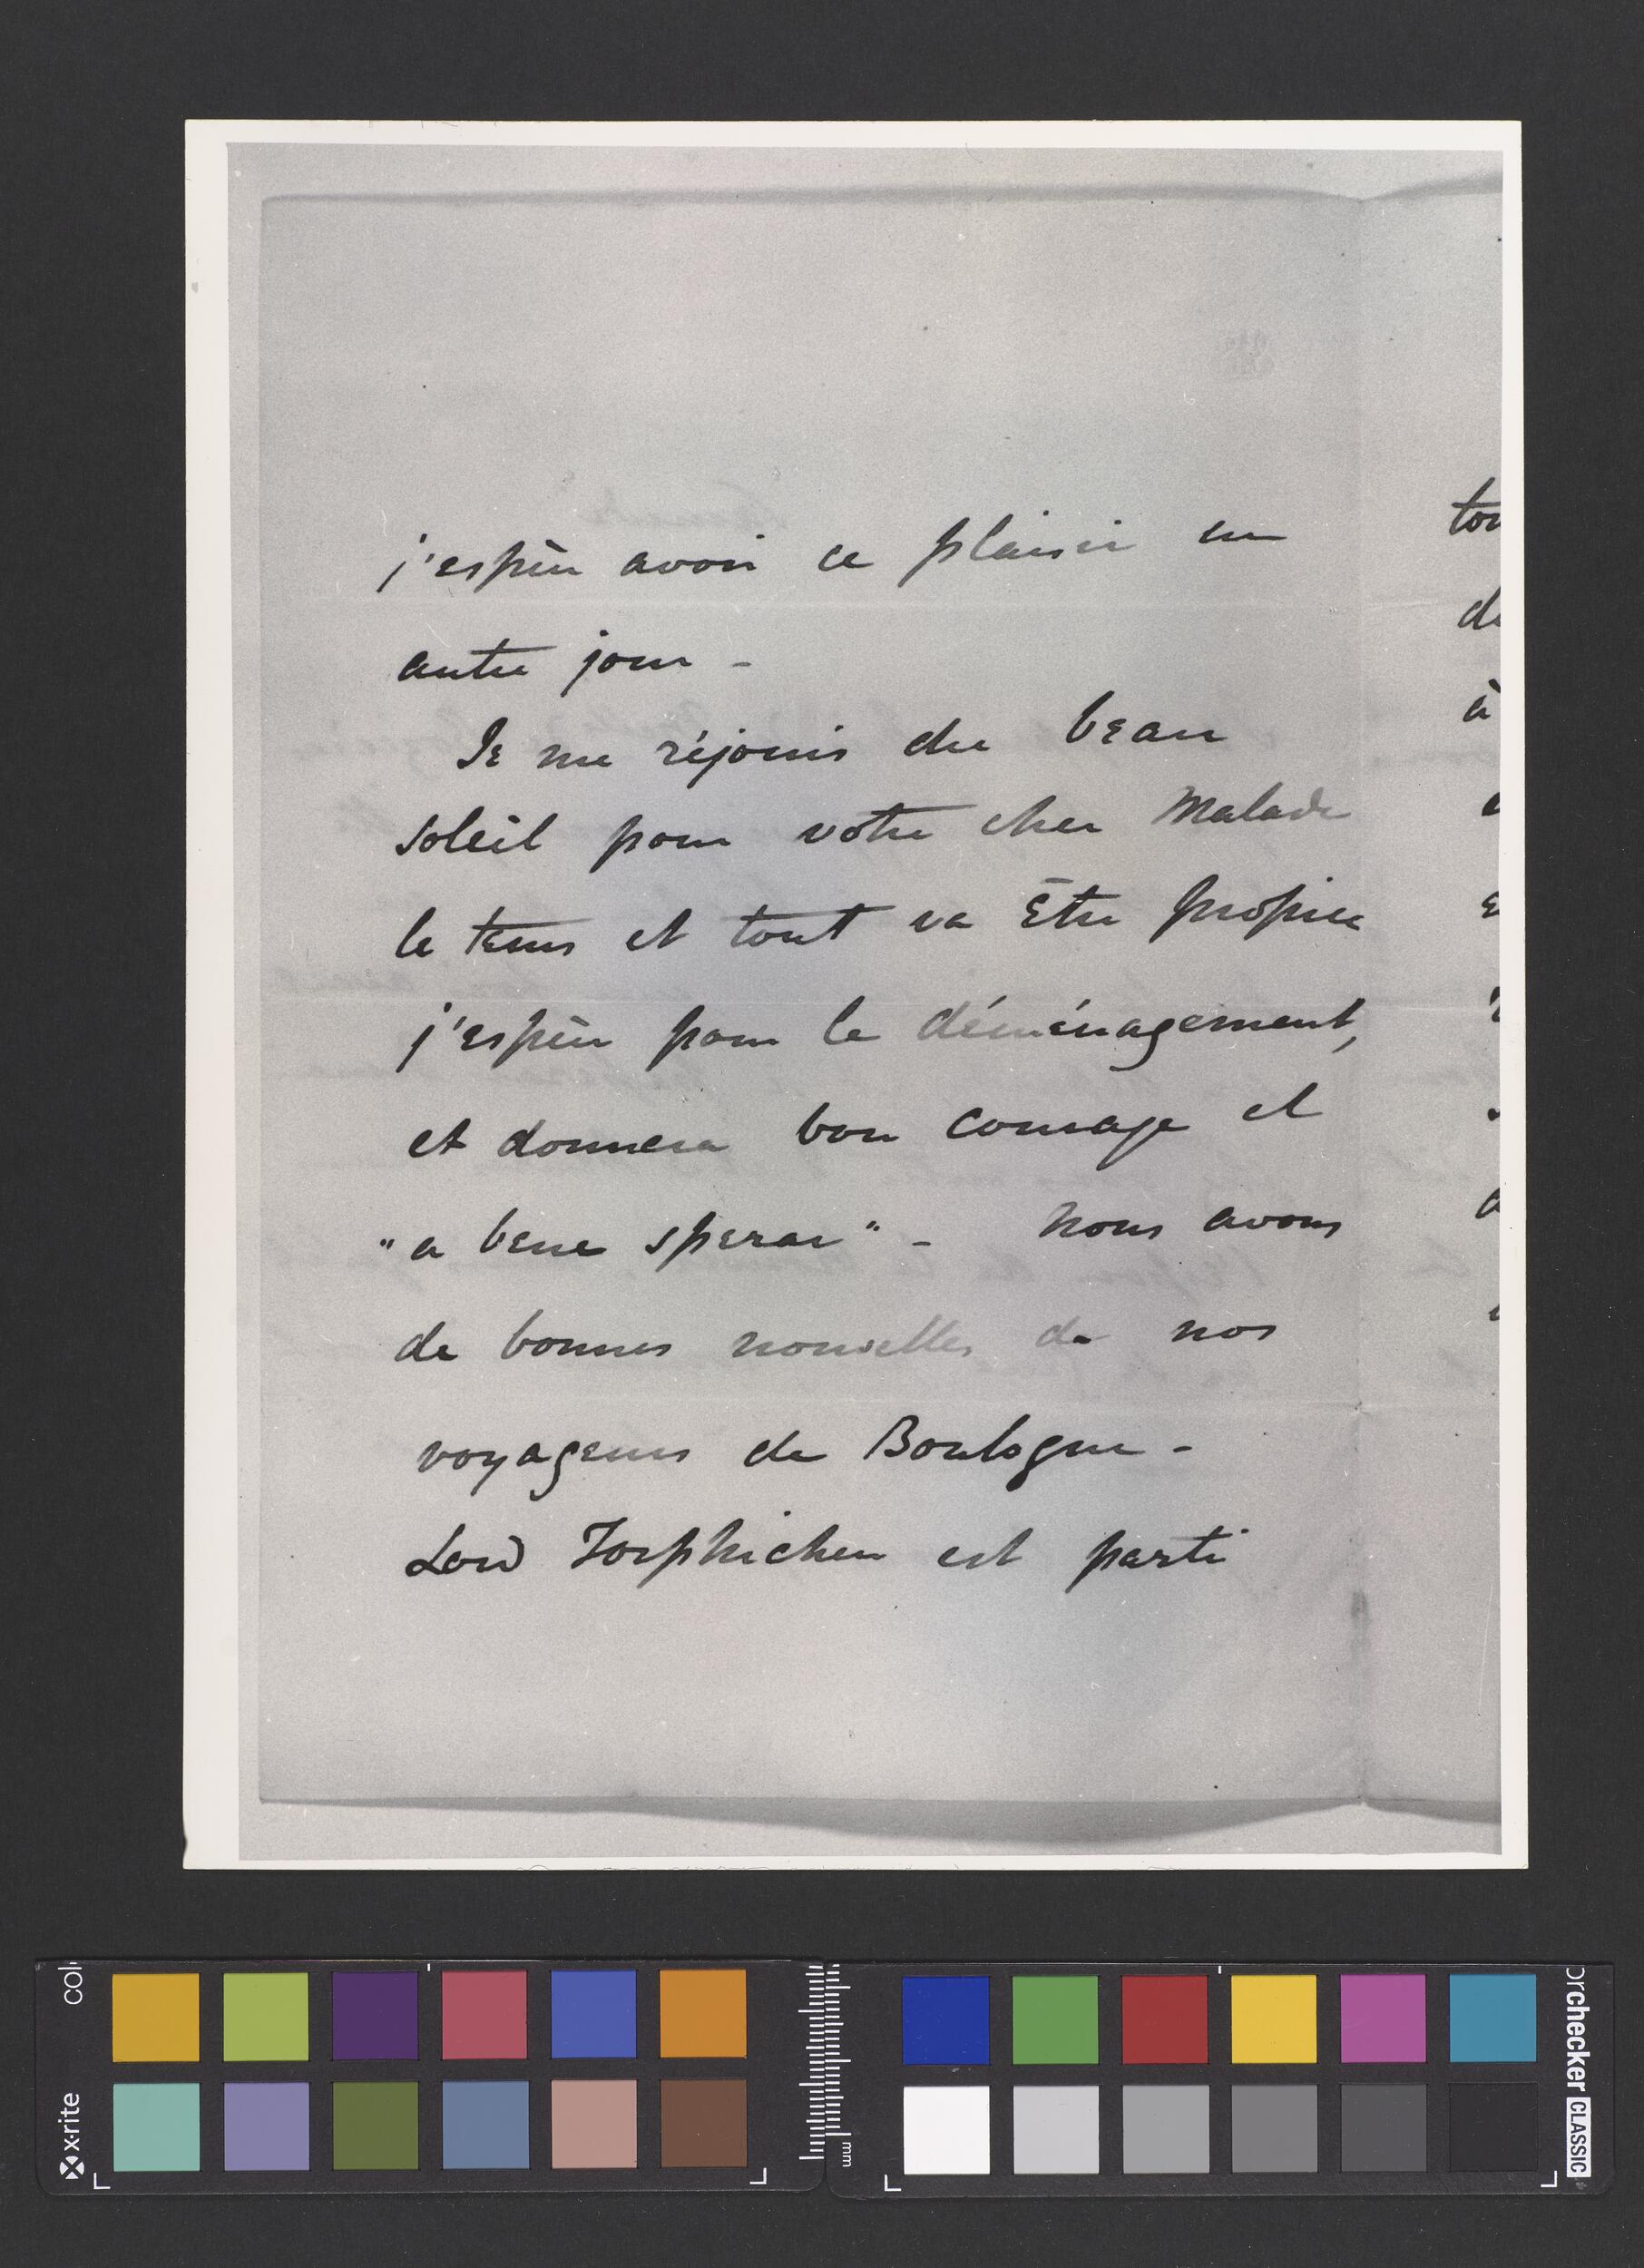 j'espère avoir ce plaisir un
autre jour -
Je me réjouis du beau
soleil pour votre cher Malade
le tems et tout va être propice
j'espère pour le déménagement,
et donnera bon courage et
"a bene sperar" - Nous avons
de bonnes nouvelles de nos
voyageurs de Boulogne -
Lord Torphichen est parti
à
x-rite
mm
checker CLASSIC